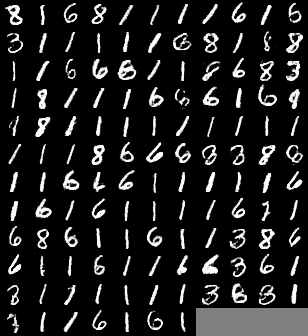 8 1 6 8 1 1 1 1 6 1 6
3 1 1 1 1 1 6 8 1 8 8
1 1 6 6 8 1 1 8 6 8 3
1 8 1 1 1 6 6 1 6 8
1 8 1 1 1 1 1 1 1 1 1
1 1 1 8 6 6 6 3 3 8 8
1 1 6 6 6 1 1 1 1 1 6
1 6 1 6 1 1 1 1 6 7 1
6 8 6 1 1 6 1 1 3 8 6
6 1 1 6 1 1 6 6 3 6 1
3 1 1 1 1 1 1 3 3 1
7 1 1 6 1 6 1